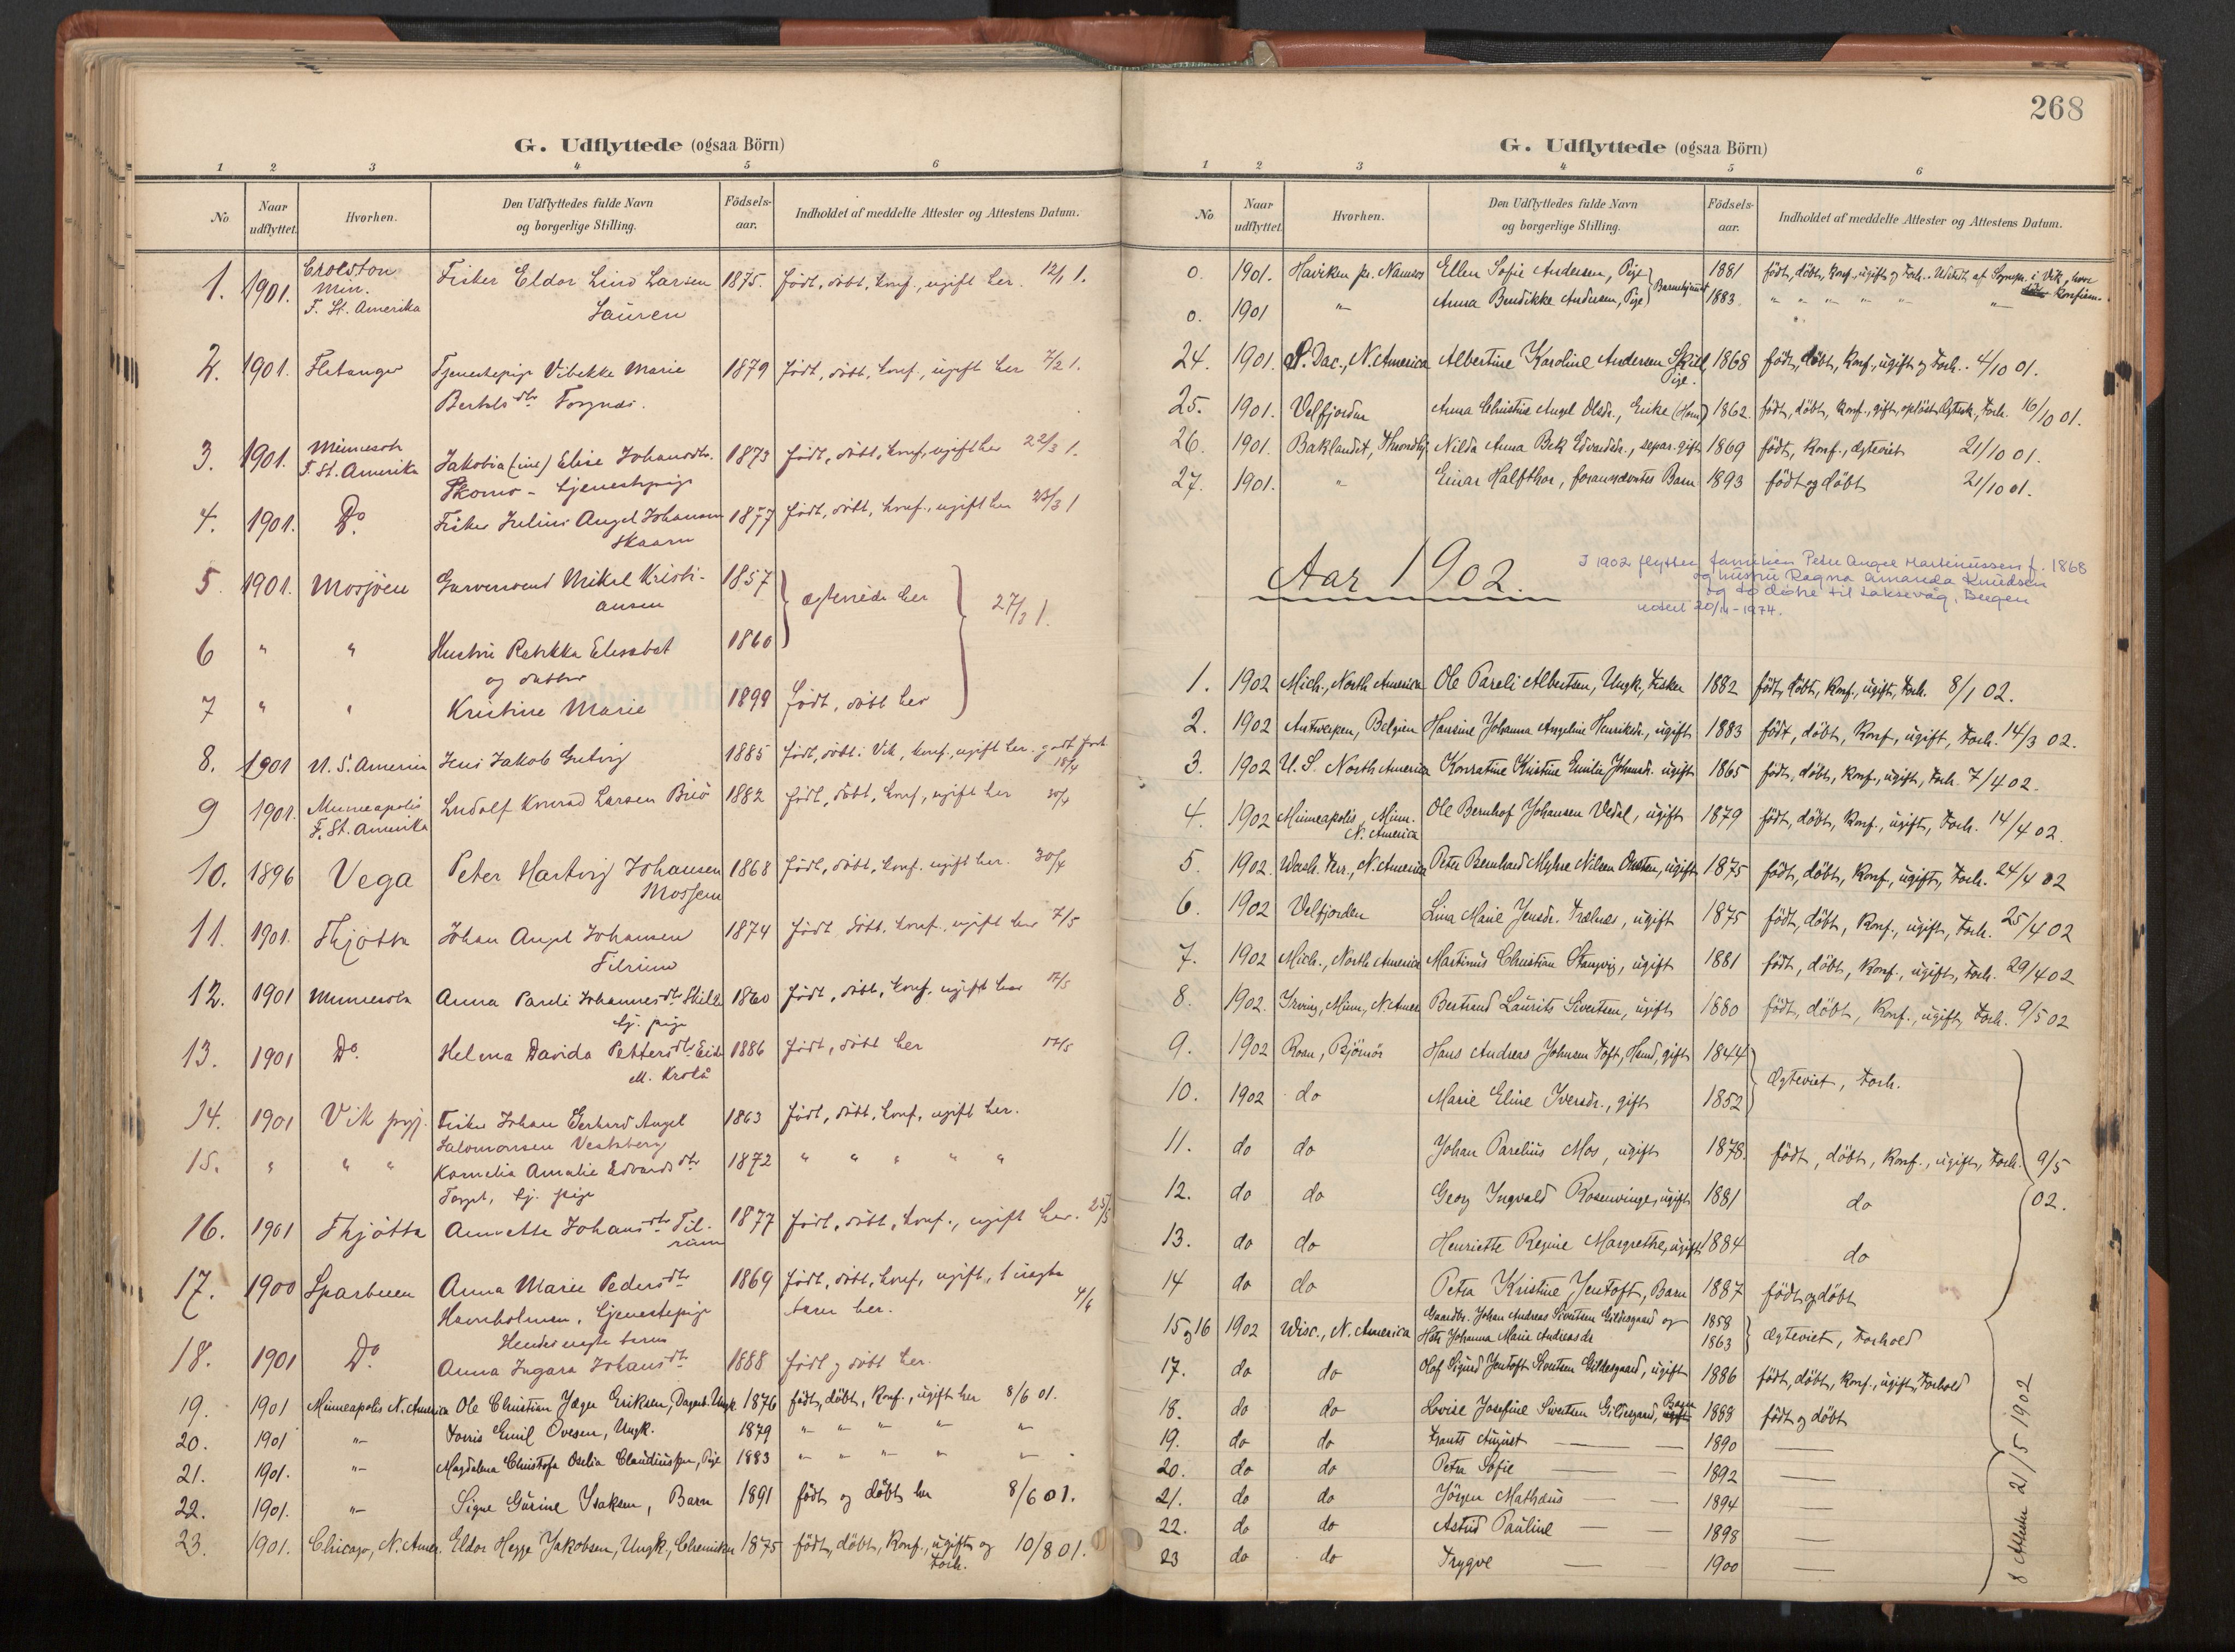 G. Udflyttede (ogsaa Börn)
1 2 3 4 5 6
No Naar udflyttet. Hvorhen. Den Udflyttedes fulde Navn og borgerlige Stilling. Födsels-aar. Indholdet af meddelte Attester og Attestens Datum.
1. 1901. Min. F. St. Amerika Fisker Eldor Lind Larsen 1875. født, døbt, konf., ugift her. 12/1 1.
2. 1901. Flatanger Tjenestepige Vibekke Marie 1879 født, døbt, konf., ugift her 7/2 1.
Bertels dtr
3. 1901. Minnesota F. St. Amerika Jakobia (ine) Elise Johansdtr. 1873 født, døbt, konf., ugift her 22/3 1.
Skomo - tjenestepige
4. 1901. Do. Fisker Julius Angel Johansen 1877 født, døbt, konf., ugift her 23/3 1
5 1901. Mosjöen Garversvend Mikal Kristi- 1857 ægteviede her 27/3 1.
ansen
6 " " Hustru Rebekka Elisabet 1860
og datter
7 " " Kristine Marie 1899 født, døbt her
8. 1901 N. S. Amerika Jens Jakob 1885 født, døbt i Vik, konf., ugift her. godt forh.
18/4
9 1901. Minneapolis F. St. Amerika Ludolf Konrad Larsen 1882 født, døbt, konf., ugift her 30/4
10. 1896 Vega Peter Hartvig Johansen 1868 født, døbt, konf. ugift her. 30/4
Mossem
11. 1901. Thjøtta Johan Angel Johansen 1874 født, døbt, konf., ugift her 7/5
12. 1901 Minnesota Anna Pareli Johannesdtr 1860 født, døbt, konf., ugift her 17/5
tj. pige
13. 1901 Do. Helena Davida Pettersdtr 1886 født, døbt her 17/5
14. 1901 Vik prgj. Fisker Johan Gerhard Angel 1863 født, døbt, konf., ugift her.
Salomonsen
15. " " " Kornelia Amalie Edvardsdtr 1872 " " " " "
Torget, tj. pige
16. 1901 Thjøtta Annette Johansdtr Til- 1877 født, døbt, konf., ugift her. 25/5
rum
17. 1900 Sparbuen Anna Marie Pedersdtr 1869 født, døbt, konf., ugift, 1 uægte
Havnholmen, tjenestepige barn her. 4/6
Hendes uægte barn
18. 1901 Do. Anna Ingara Johansdtr 1888 født og døbt her.
19. 1901 Minneapolis N. America Ole Christian Jæger Eriksen, Dagarb. Ungk. 1876 født, døbt, Konf., ugift her 8/6 01.
20. 1901 "- Emil Ovesen, Ungk. 1879 "- "- "- "- "-
21. 1901. "- Magdalena Christofa Oselia Claudiusen, Pige 1883 "- "- "- "- "-
22. 1901. "- Signe Gurine Isaksen, Barn 1891 født og døbt her 8/6 01.
23. 1901. Chicago, N. Amer. Eldor Hegge Jakobsen, Ungk., 1875 født, døbt, Konf., ugift og Forh. 10/8 01.
268
G. Udflyttede (ogsaa Börn)
1 2 3 4 5 6
No Naar udflyttet. Hvorhen. Den Udflyttedes fulde Navn og borgerlige Stilling. Födsels-aar. Indholdet af meddelte Attester og Attestens Datum.
0. 1901. Haviken pr. Namsos Ellen Sofie Andersen, Pige 1881 født, døbt, Konf., ugift og Forh. i Vik, hvor
0. 1901 "- Anna Bendikke Andersen, Pige Barnehjemmet 1883 " " " " " " konfirm.
24. 1901. N. Dac., N. America Albertine Karoline Andersen Skill 1868 født, døbt, Konf., ugift og Forh. 4/10 01.
Pige.
25. 1901. Velfjorden Anna Christine Angel Olsdr., Enke 1862 født, døbt, Konf., gift, opløst Ægtesk., Forh. 16/10 01.
26. 1901. Baklandet, Throndhj. Nilda Anna Bek Edvardsdr., separ. gift 1869 født, Konf., Ægteviet 21/10 01.
27. 1901. " Einar Halfthor, forannævntes Barn 1893 født og døbt 21/10 01.
Aar 1902.
I 1902 flytter familien Peter Angel Martinussen f. 1868
og hustru Ragna Amanda Knudsen
og to døtre til Laksevåg, Bergen
notert 20/11-1974.
1. 1902 Mich., North America Ole Pareli Albertsen, Ungk., Fisker 1882 født, døbt, Konf., ugift, Forh. 8/1 02.
2. 1902 Antwerpen, Belgien Hansine Johanna Angeline Henriksdr., ugift 1883 født, døbt, Konf., ugift, Forh. 14/3 02.
3. 1902 U. S. North America Konratine Kristine Emilie Johansdr. ugift 1865 født, døbt, Konf., ugift, Forh. 7/4 02.
4. 1902 Minneapolis, Minn. N. America Ole Bernhof Johansen Vedal, ugift 1879 født, døbt, Konf., ugift, Forh. 14/4 02.
5. 1902. Wash. Terr., N. America Peter Bernhard Myhre Nilsen, ugift 1875 født, døbt, Konf., ugift, Forh. 24/4 02
6. 1902 Velfjorden Lina Marie Jensdr. Trælnes, ugift 1875 født, døbt, Konf., ugift, Forh. 25/4 02
7. 1902 Mich., North America Martinus Christian Stangvig, ugift 1881 født, døbt, Konf., ugift, Forh. 29/4 02
8. 1902. Irving, Minn., N. Amer. Bertrand Laurits Sivertsen, ugift 1880 født, døbt, Konf., ugift, Forh. 9/5 02
9. 1902 Roan, Bjørnør Hans Andreas Johnsen Toft, gift 1844 Ægteviet, Forh.
10. 1902 do Marie Eline Iversdr., gift 1852
11. do do Johan Parelius Mos, ugift 1878. født, døbt, Konf., ugift, Forh. 9/5
12. do do Georg Ingvald Rosenvinge, ugift 1881 do 02.
13. do do Henriette Regine Margrethe, ugift 1884 do
14 do do Petra Kristine Jentoft, Barn 1887 født og døbt
15 og 16 1902 Wisc., N. America Gaardbr. Johan Andreas Sivertsen Gildesgaard og 1858 Ægteviet, Forhold
Hstr Johanna Marie Andreasdr 1863
17. do do Olaf Sigurd Jentoft Sivertsen Gildesgaard, ugift 1886 født, døbt, Konf., ugift, Forhold
18. do do Lovise Josefine Sivertsen Gildesgaard, Barn 1888 født og døbt
19. do do Frants August — — 1890 —
20. do do Petra Sofie — — 1892 —
21. do do Jörgen Mathæus — — 1894 —
22. do do Astrid Pauline — — 1898 —
23 do do Trygve — 1900 —
8 Attester 21/5 1902